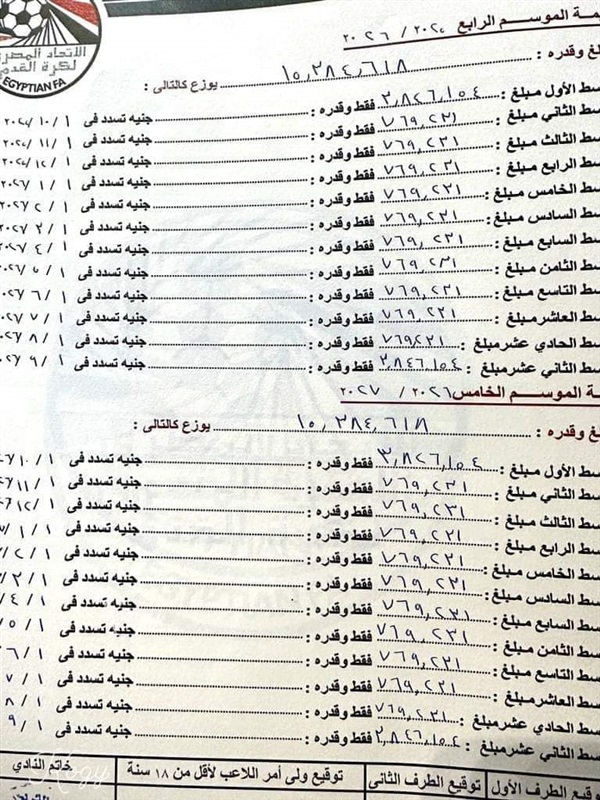 الاتحاد المصرى
لكرة القدم
EGYPTIAN FA
مة الموسم الرابع ٢٠٢٥ / ٢٠٢٦
لغ وقدره : ١٥,٣٨٤,٦١٨ يوزع كالتالى :
سط الأول مبلغ : ٣,٨٤٦,١٥٤ فقط وقدره : جنيه تسدد فى ١ / ١٠ /
سط الثاني مبلغ : ٧٦٩,٢٣١ فقط وقدره : جنيه تسدد فى ١ / ١١ /
سط الثالث مبلغ : ٧٦٩,٢٣١ فقط وقدره : جنيه تسدد فى ١ / ١٢ /
سط الرابع مبلغ : ٧٦٩,٢٣١ فقط وقدره : جنيه تسدد فى ١ / ١ /
سط الخامس مبلغ : ٧٦٩,٢٣١ فقط وقدره : جنيه تسدد فى ١ / ٢ /
سط السادس مبلغ : ٧٦٩,٢٣١ فقط وقدره : جنيه تسدد فى ١ / ٣ /
سط السابع مبلغ : ٧٦٩,٢٣١ فقط وقدره : جنيه تسدد فى ١ / ٤ /
سط الثامن مبلغ : ٧٦٩,٢٣١ فقط وقدره : جنيه تسدد فى ١ / ٥ /
سط التاسع مبلغ : ٧٦٩,٢٣١ فقط وقدره : جنيه تسدد فى ١ / ٦ /
سط العاشر مبلغ : ٧٦٩,٢٣١ فقط وقدره : جنيه تسدد فى ١ / ٧ /
سط الحادي عشر مبلغ : ٧٦٩,٢٣١ فقط وقدره : جنيه تسدد فى ١ / ٨ /
سط الثاني عشر مبلغ : ٣,٨٤٦,١٥٤ فقط وقدره : جنيه تسدد فى ١ / ٩ /
ـة الموسم الخامس ٢٠٢٦ / ٢٠٢٧
لغ وقدره : ١٥,٣٨٤,٦١٨ يوزع كالتالى :
سط الأول مبلغ : ٣,٨٤٦,١٥٤ فقط وقدره : جنيه تسدد فى ١ / ١٠ /
سط الثاني مبلغ : ٧٦٩,٢٣١ فقط وقدره : جنيه تسدد فى ١ / ١١ /
سط الثالث مبلغ : ٧٦٩,٢٣١ فقط وقدره : جنيه تسدد فى ١ / ١٢ /
سط الرابع مبلغ : ٧٦٩,٢٣١ فقط وقدره : جنيه تسدد فى ١ / ١ /
سط الخامس مبلغ : ٧٦٩,٢٣١ فقط وقدره : جنيه تسدد فى ١ / ٢ /
سط السادس مبلغ : ٧٦٩,٢٣١ فقط وقدره : جنيه تسدد فى ١ / ٣ /
سط السابع مبلغ : ٧٦٩,٢٣١ فقط وقدره : جنيه تسدد فى ١ / ٤ /
سط الثامن مبلغ : ٧٦٩,٢٣١ فقط وقدره : جنيه تسدد فى ١ / ٥ /
سط التاسع مبلغ : ٧٦٩,٢٣١ فقط وقدره : جنيه تسدد فى ١ / ٦ /
سط العاشر مبلغ : ٧٦٩,٢٣١ فقط وقدره : جنيه تسدد فى ١ / ٧ /
سط الحادي عشر مبلغ : ٧٦٩,٢٣١ فقط وقدره : جنيه تسدد فى ١ / ٨ /
سط الثاني عشر مبلغ : ٣,٨٤٦,١٥٤ فقط وقدره : جنيه تسدد فى ١ / ٩ /
توقيع الطرف الأول توقيع الطرف الثانى توقيع ولى أمر اللاعب لأقل من ١٨ سنة خاتم النادي